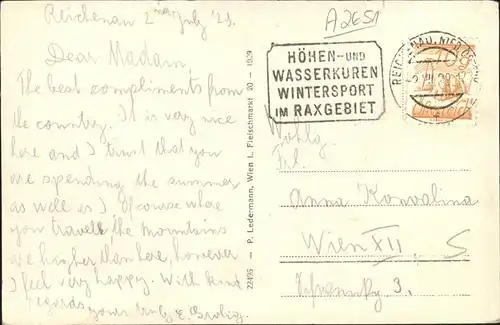 Reichenau 2nd July '29.
A2E51
Dear Madam,
The best compliments from
the country. It is very nice
here and I trust that you
are spending the summer
as well as I. Of course where
you travelle the mountains
are higher then here, however
I feel very happy. With kind
regards, yours truly
22495 - P. Ledermann, Wien I., Fleischmarkt 20 - 1929
HÖHEN- UND
WASSERKUREN
WINTERSPORT
IM RAXGEBIET
REICHENAU, NIED
Frl.
Anna Konvalina
Wien XII
3.